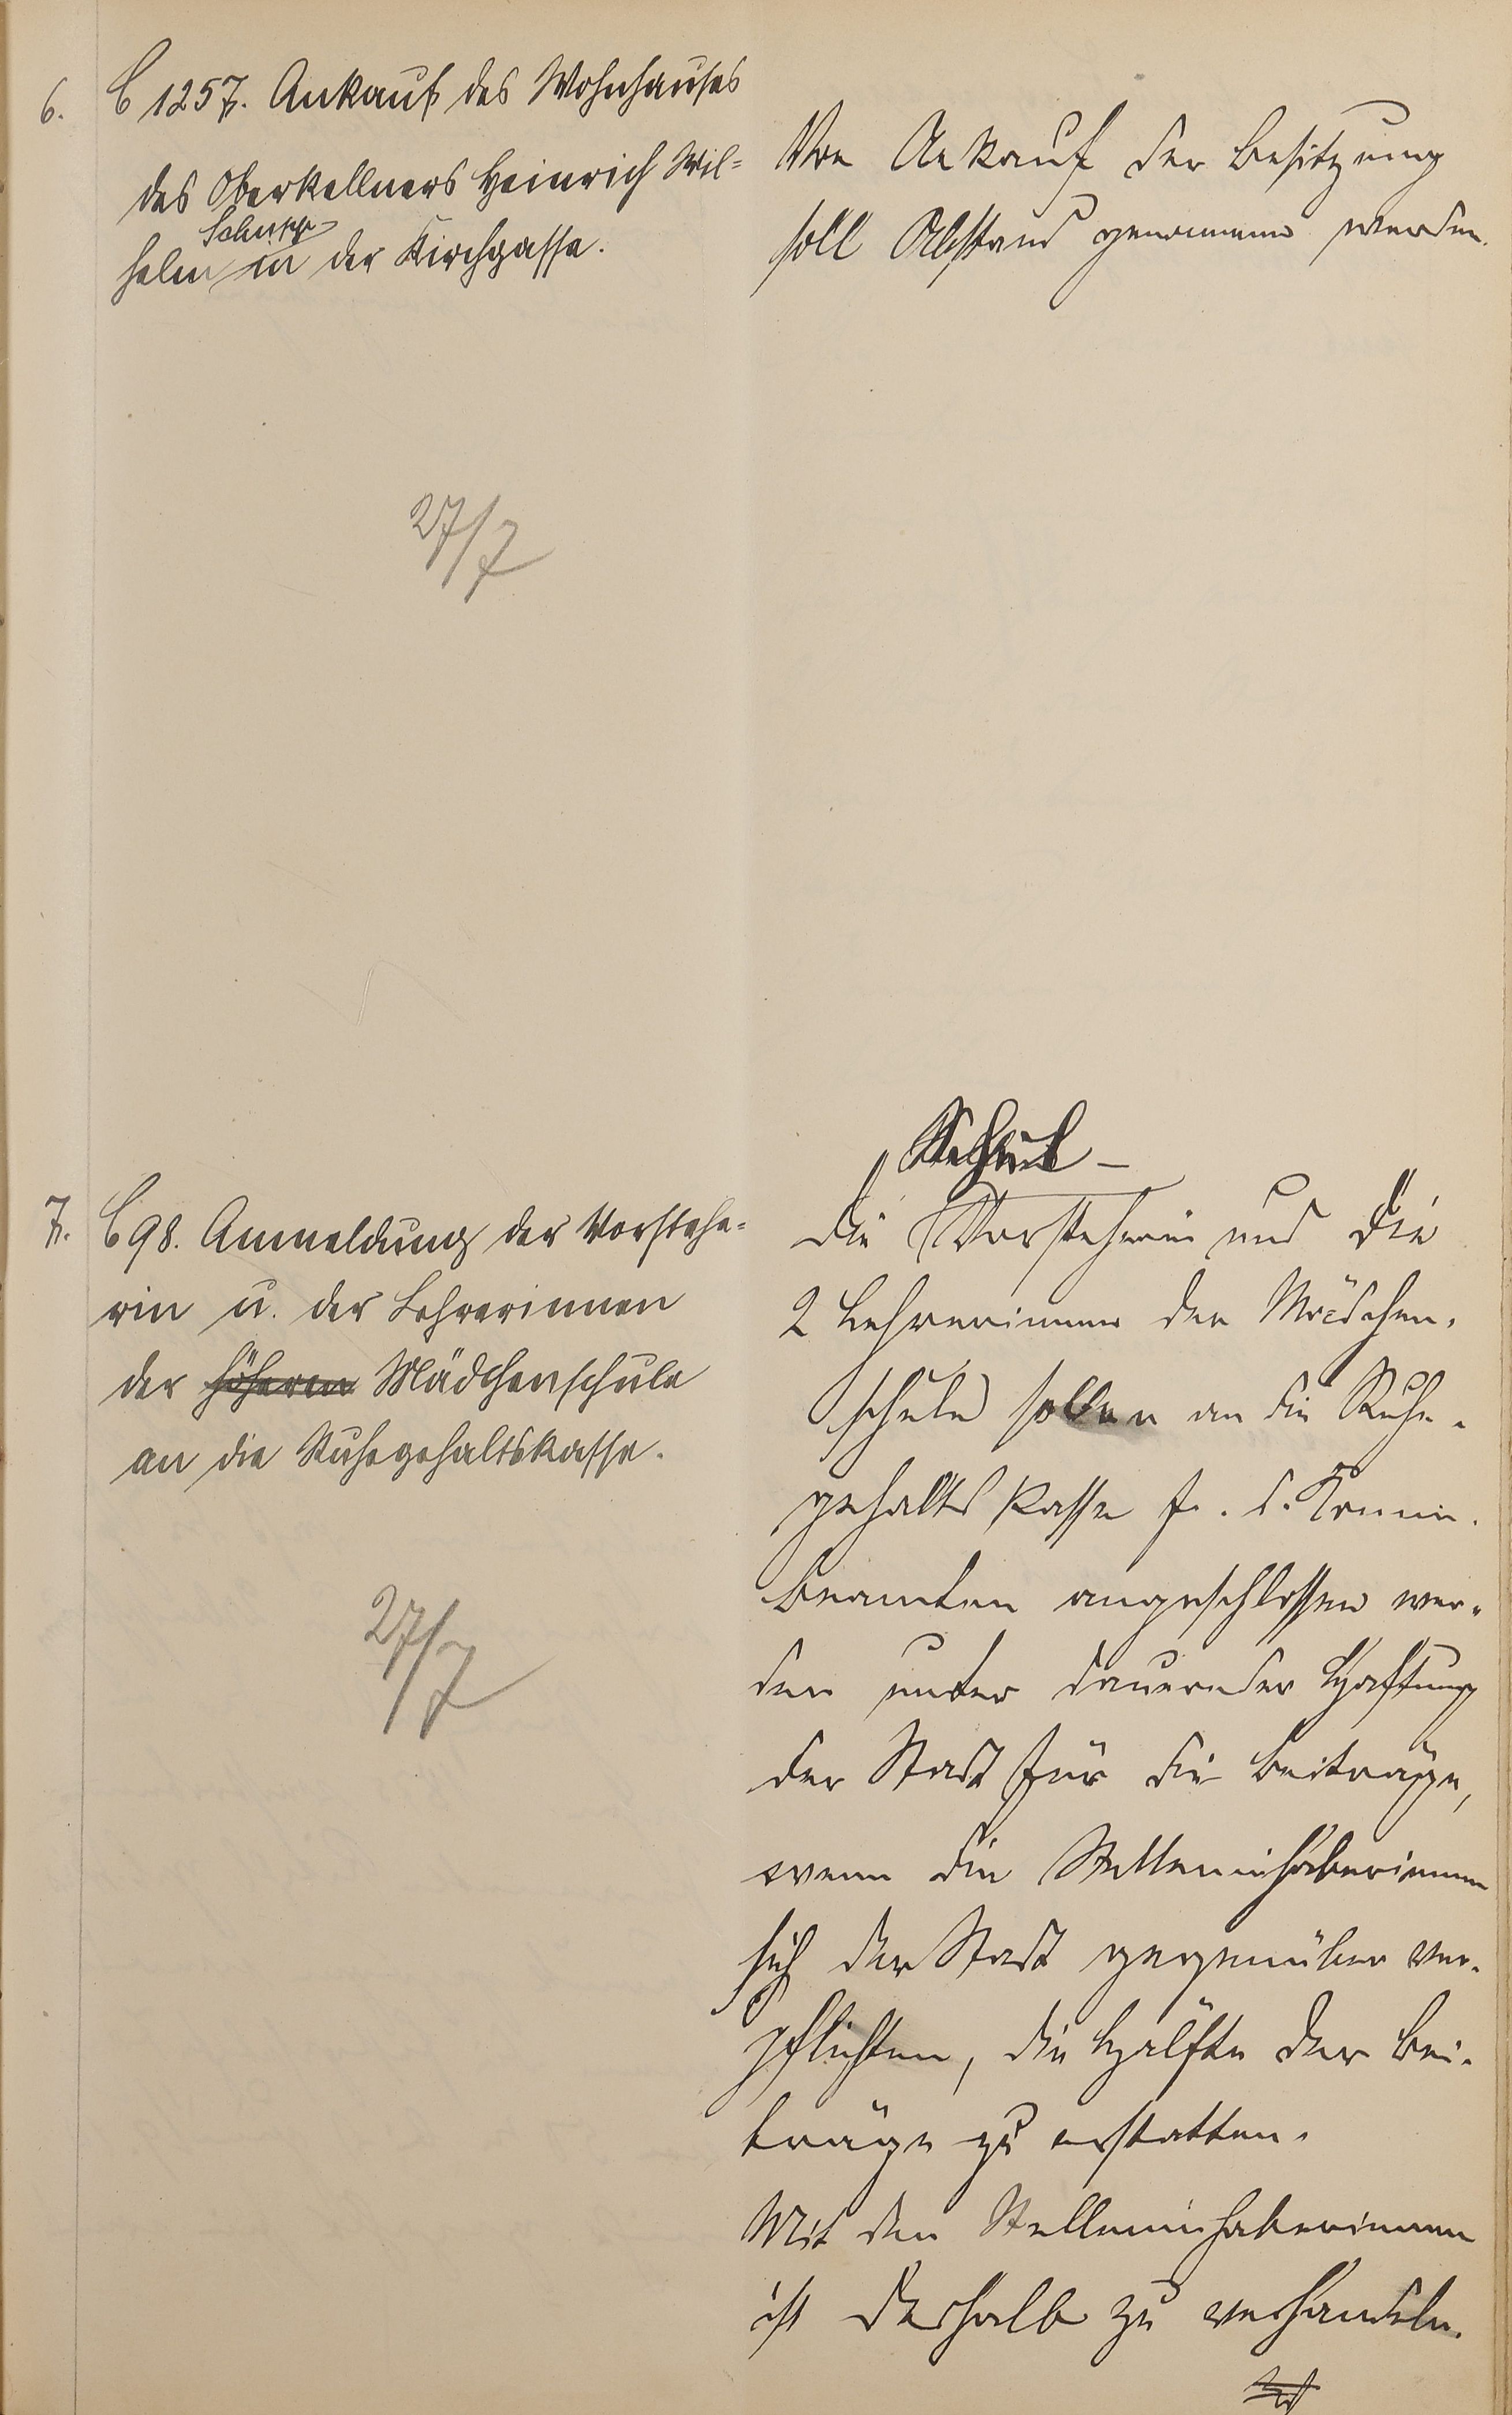 6. C 1257. Ankauf des Wohnhauses
des Oberkellners Heinrich Wil=
Schupp
helm in der Kirchgasse.
Von Ankauf der Besitzung
soll Abstand genommen werden.
27/7
7. C 98. Anmeldung der Vorstehe=
rin u. der Lehrerinnen
der höheren Mädchenschule
an die Ruhegehaltskasse.
27/7
Schul-
Die Vorsteherin und die
2 Lehrerinnen der Mädchen-
schule sollen an die Ruhe-
gehalts Kasse f. d. Komm.
beamten angeschlossen wer-
den unter dauernder Haftung
der Stadt für die Beiträge,
wenn die Stelleninhaberinnen
sich der Stadt gegenüber ver-
pflichten, die Hälfte der Bei-
träge zu erstatten.
Mit den Stelleninhaberinnen
ist deshalb zu verhandeln.